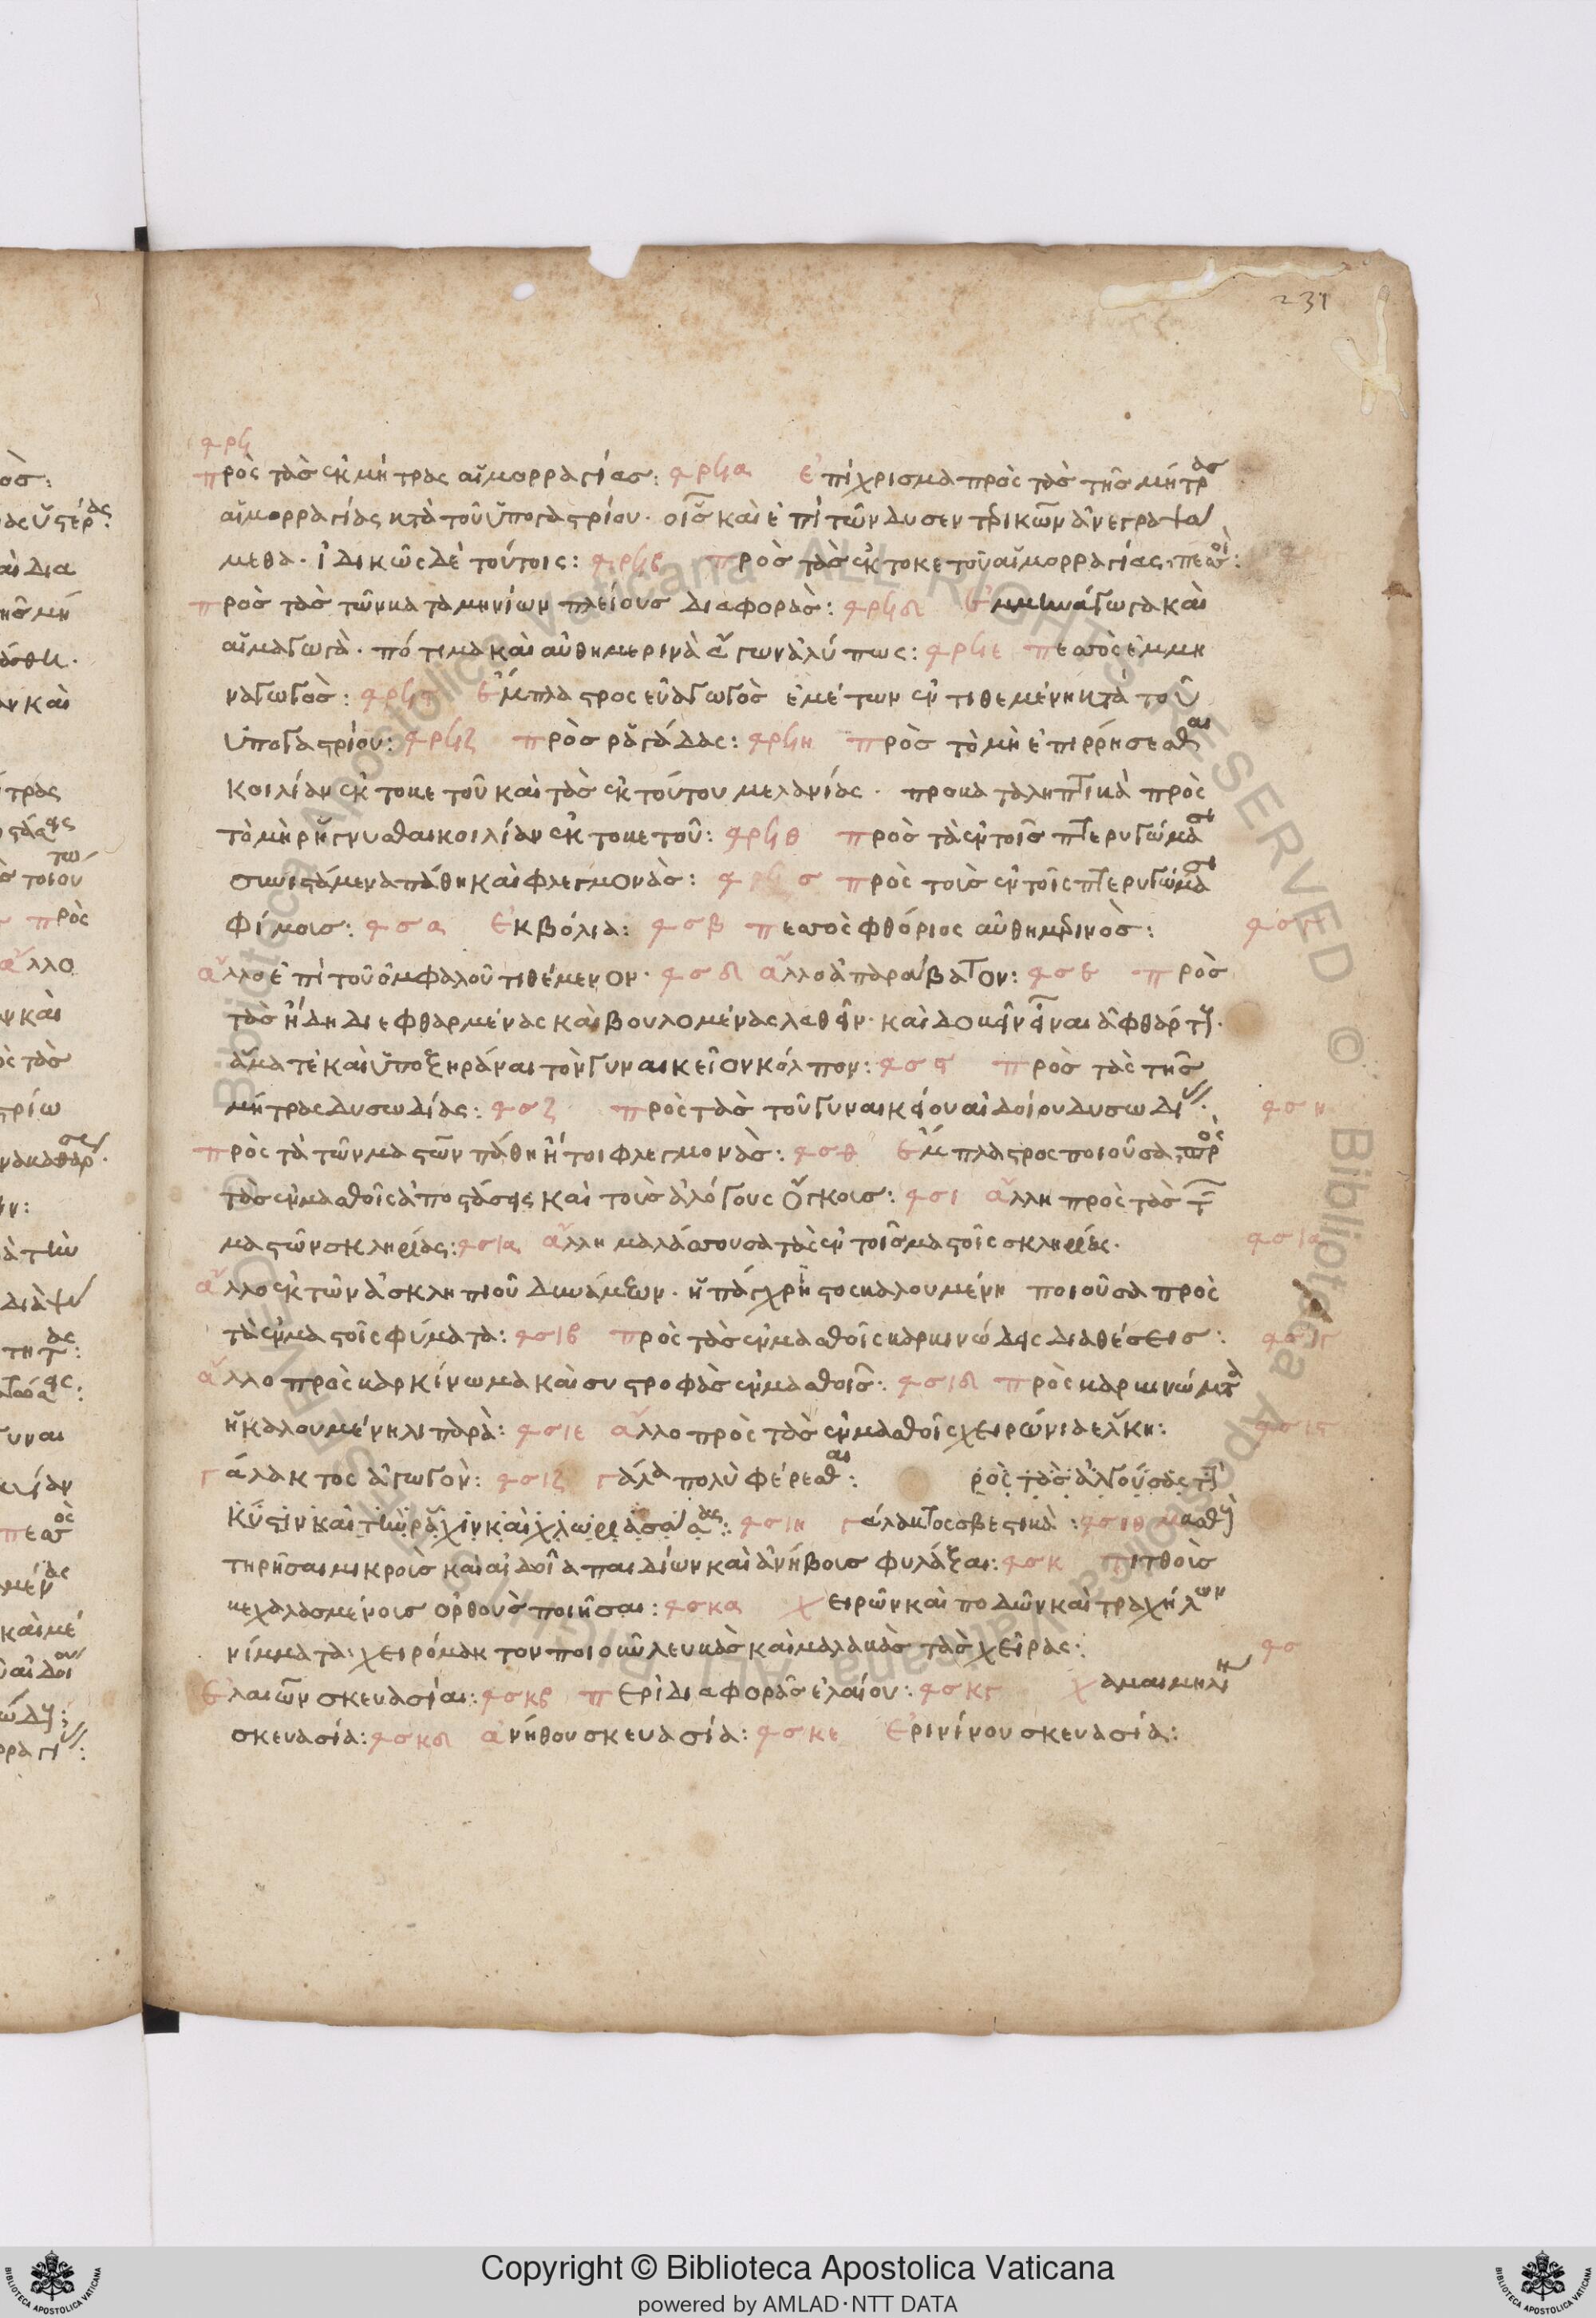 231
φρϟ
πρὸς τὰσ ἐκ μήτρας αἱμορραγίασ: φρϟα ἐπίχρισμα πρὸς τὰσ τῆσ μήτρασ
αἱμορραγίας κτὰ τοῦ ὑπογαστρίου· οἷσ καὶ ἐπὶ τῶν δυσεντερικῶν ἀνεγραψα
μεθα· ἰδικῶς δὲ τούτοις: φρϟβ πρὸσ τὰσ ἐκ τοκετοῦ αἱμορραγίας, πεσσοὶ:
πρὸσ τὰσ τῶν καταμηνίων πλείουσ διαφορὰσ: φρϟδ ἐμμηνάγωγα καὶ
αἱμαγωγὰ· πότιμα καὶ αὐθημερινὰ ἄγων ἀλύπως: φρϟε πεσσὸς ἐμμη
ναγωγὸσ: φρϟϛ ἔμπλαστρος εὐαγωγὸσ ἐμέτων ἐντιθεμένη κτά τοῦ
ὑπογαστρίου: φρϟζ πρὸσ ῥαγάδας: φρϟη πρὸσ τὸ μὴ ἐπιρρήσεσθαι
κοιλίαν ἐκ τοκετοῦ καὶ τὰσ ἐκ τούτου μελανίας· προκαταληπτικὰ πρὸς
τὸ μὴ ρήγνυσθαι κοιλίαν ἐκ τοκετοῦ: φρϟθ πρὸσ τὰ ἐν τοῖσ πτερυγώμασι
συνιστάμενα πάθη καὶ φλεγμονὰσ: φσ πρὸς τοὺσ ἐν τοῖς πτερυγώμασι
φίμουσ: φσα ἐκβόλια: φσβ πεσσὸς φθόριος αὐθημερινὸσ:
ἄλλο ἐπὶ τοῦ ὀμφαλοῦ τιθέμενον· φσδ ἄλλο ἀπαράβατον: φσε πρὸσ
τὰσ ἤδη διεφθαρμένας καὶ βουλομένας λαθεῖν· καὶ δοκεῖν εἶναι ἀφθάρτους·
ἅμα τὲ καὶ ὑποξηράναι τὸν γυναικεῖον κόλπον: φσϛ πρὸσ τὰς τῆσ
μήτρας δυσωδίας: φσζ πρὸς τὰσ τοῦ γυναικείου αἰδοίου δυσωδίας: φση
πρὸς τὰ τῶν μαστῶν πάθη ἤτοι φλεγμονὰσ: φσθ ἔμπλαστρος ποιοῦσα πρὸς
τὰσ ἐν μασθοῖς ἀποστάσεις καὶ τοὺσ ἀλόγους ὄγκουσ: φσι ἄλλη πρὸς τὰσ τῶν
μαστῶν σκληρίας: φσια ἄλλη μαλάσσουσα τὰς ἐν τοῖσ μαστοῖς σκληρίας· φσια
ἄλλο ἐκ τῶν ἀσκληπιοῦ δυνάμεων· ἡ πάγχρηστος καλουμένη ποιοῦσα πρὸς
τὰ ἐν μαστοῖς φύματα: φσιβ πρὸς τὰσ ἐν μασθοῖς καρκινώδεις διαθέσεισ: φσιγ
ἄλλο πρὸς καρκίνωμα καὶ συστροφὰσ ἐν μασθοῖσ: φσιδ πρὸς καρκινώματα
ἡ καλουμένη λιπαρὰ: φσιε ἄλλο πρὸς τὰσ ἐν μασθοῖς χειρώνια ἕλκη: φσιϛ
γάλακτος ἀγωγὸν: φσιζ γάλα πολὺ φέρεσθαι: ρὸς τὰσ ἀλγούσας τὴν
κύστιν καὶ τὴν ράχιν καὶ χλωριασάσας: φσιη γάλακτος σβεστικὰ: φσιθ μασθοὺς
τηρῆσαι μικροὺσ καὶ αἰδοῖα παιδίων καὶ ἀνήβουσ φυλάξαι: φσκ τιτθοὺσ
κεχαλασμένουσ ὀρθοὺσ ποιῆσαι: φσκα χειρῶν καὶ ποδῶν καὶ τραχήλων
νίμματα· χειρόμακτον ποιοῦν λευκὰσ καὶ μαλακὰσ τὰσ χεῖρας:
ἐλαιῶν σκευασίαι: φσκβ περὶ διαφορᾶσ ἐλαίου: φσκγ χαμαιμηλι
σκευασία: φσκδ ἀνήθου σκευασία: φσκε ἐρινίνου σκευασία:
Copyright © Biblioteca Apostolica Vaticana
powered by AMLAD·NTT DATA